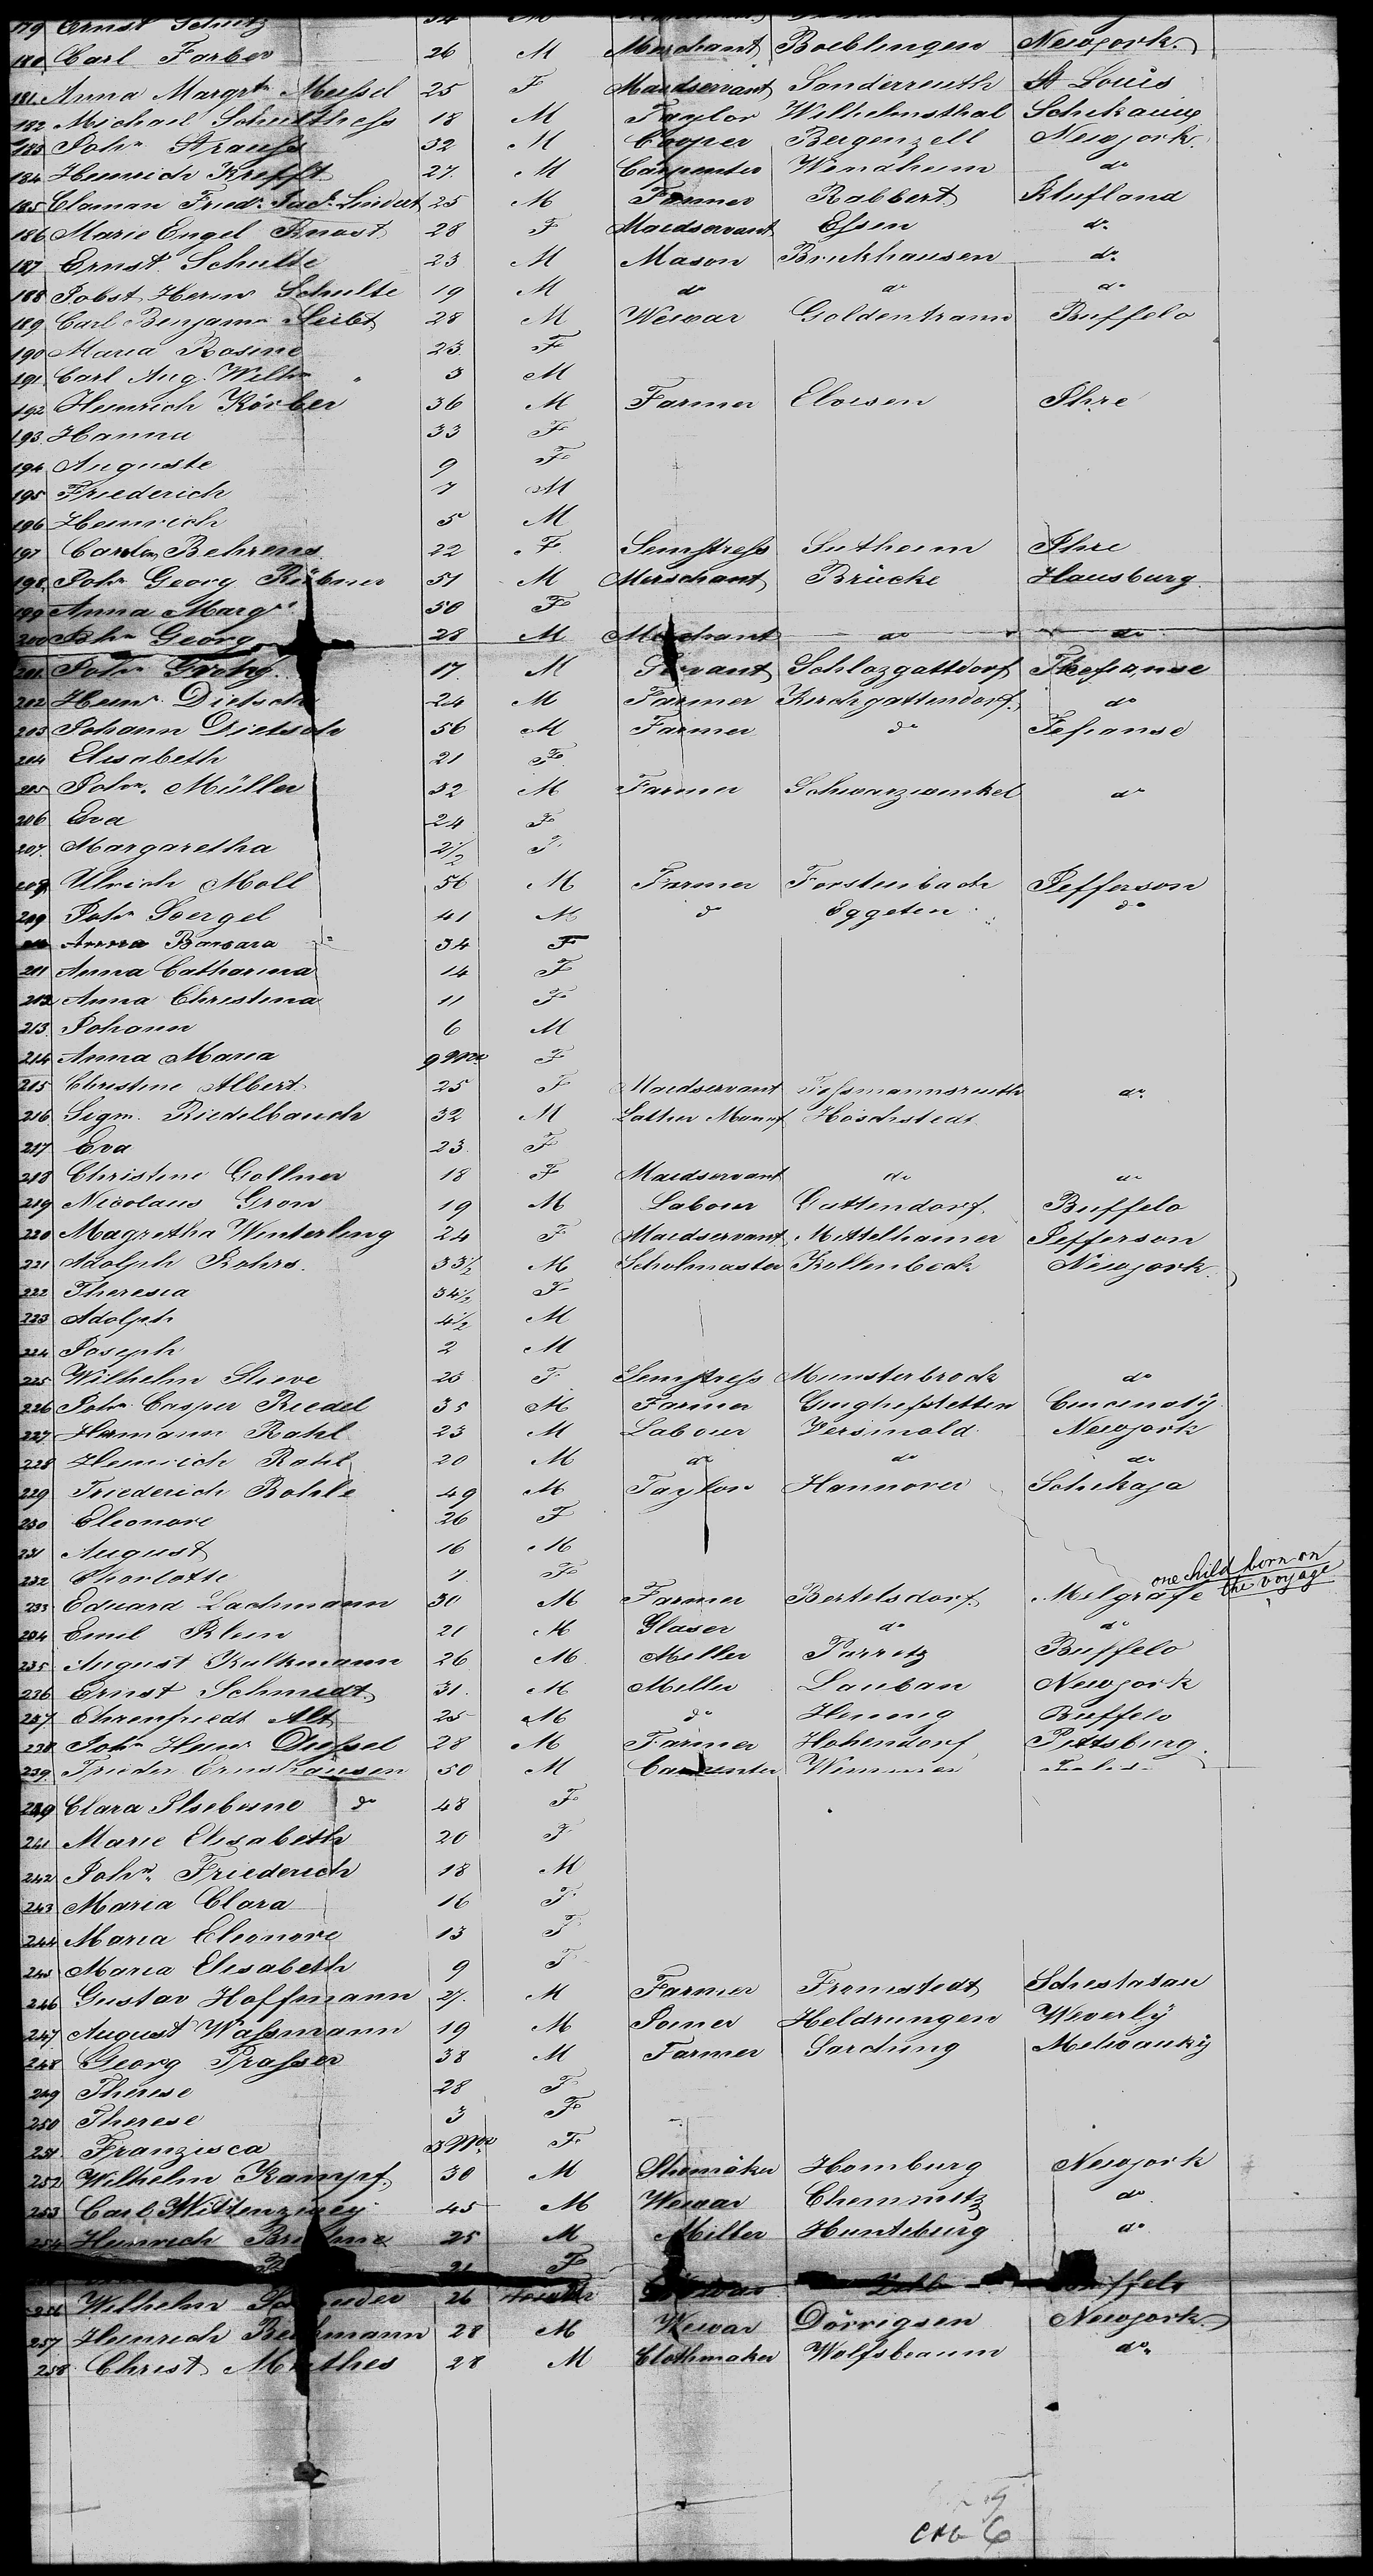 179 Ernst Schutz 34 M
180 Carl Farber 26 M Merchant Boeblingen Newyork
181 Anna Margrtn Meusel 25 F Maidservant Sonderreuth St Louis
182 Michael Schulthess 18 M Taylor Wilhelmsthal
183 John Strauss 32 M Cooper Bergenzell Newyork
184 Heinrich Krefft 27 M Carpenter Windheim do
185 Claman Fried. Lindert 25 M Farmer Rabbert Klefland
186 Marie Engel Knost 28 F Maidservant Essen do
187 Ernst Schulte 23 M Mason Brukhausen do
188 Jobst Herm Schulte 19 M do do do
189 Carl Benjamn Seibt 28 M Wewar Goldentraum Buffelo
190 Maria Rosine 23 F
191 Carl Aug. Wilhm " 3 M
192 Heinrich Körber 36 M Farmer Elvesen Ihre
193 Hanna 33 F
194 Auguste 9 F
195 Friederich 7 M
196 Heinrich 5 M
197 Carolin Behrens 22 F Semstress Sutheim Ihre
198 John Georg Rübner 51 M Merschant Brücke Hausburg
199 Anna Margr 50 F
200 John Georg 28 M Merchant do do
201 John 17 M Servant Schlozgattdorf
202 Heinr Dietsch 24 M Farmer Kirchgattendorf do
203 Johann Dietsch 56 M Farmer do Jefsanse
204 Elisabeth 21 F
205 Johr. Müller 32 M Farmer Schwarzwinkel do
206 Eva 24 F
207 Margaretha 2 1/2 F
208 Ulrich Moll 56 M Farmer Forstenbach Jefferson
209 Johr Soergel 41 M do Eggeten do
Anna Barbara 34 F
211 Anna Catharina 14 F
212 Anna Christina 11 F
213 Johann 6 M
214 Anna Maria 9 Mon F
215 Christine Albert 25 F Maidservant Fessmannsreuth do
216 Sigm. Riedelbauch 32 M Lather Manuf Höschstedt
217 Eva 23 F
218 Christine Gollner 18 F Maidservant do do
219 Nicolaus Gron 19 M Labour Gattendorf Buffelo
220 Magretha Winterling 24 F Maidservant Mittelhamer Jefferson
221 Adolph Rohrs 33 1/2 M Scholmaster Koltenbeck Newyork
222 Theresia 34 1/2 F
223 Adolph 4 1/2 M
224 Joseph 2 M
225 Wilhelm Stieve 23 F Semstress Munsterbrock do
226 Johr Casper Riedel 35 M Farmer Cincinaty
227 Hermann Rahl 23 M Labour Versmold Newyork
228 Heinrich Rahl 20 M do do do
229 Friederich Bohle 49 M Taylon Hannover Schikaja
230 Eleonore 26 F
231 August 16 M
232 Charlotte 7 F
one child born on the voyage
233 Eduard Lachmann 30 M Farmer Bertelsdorf Melgrafe
234 Emil Klein 21 M Glaser do do
235 August Kulkmann 26 M Miller Parretz Buffelo
236 Ernst Schmidt 31 M Miller Lauban Newyork
237 Ehrenfriedt Alt 25 M do Hening Buffelo
238 Johr Heinr Diessel 28 M Farmer Hohendorf Pittsburg
239 Frieder Ernshausen 50 M Carpenter Wimmer
240 Clara Ilsebeine do 48 F
241 Marie Elisabeth 20 F
242 Johr. Friederich 18 M
243 Maria Clara 16 F
244 Maria Eleonore 13 F
245 Maria Elisabeth 9 F
246 Gustav Hoffmann 27 M Farmer Fromstedt Schestatau
247 August Wassmann 19 M Joiner Heldrungen Weverly
248 Georg Prasser 38 M Farmer Sarching Melwauky
249 Therese 28 F
250 Therese 3 F
251 Franzisca 3 Mon F
252 Wilhelm Kampf 30 M Shomäker Homburg Newyork
253 Carl Wittenzwey 45 M Wewar Chemnitz do
254 Heinrich 25 M Miller Hunteburg do
21 F
256 Wilhelm 26 Buffelo
257 Heinrich Beckmann 28 M Wewar Dörrigsen Newyork
258 Christ Mathes 28 M Clothmaker Wolfsbraum do
6